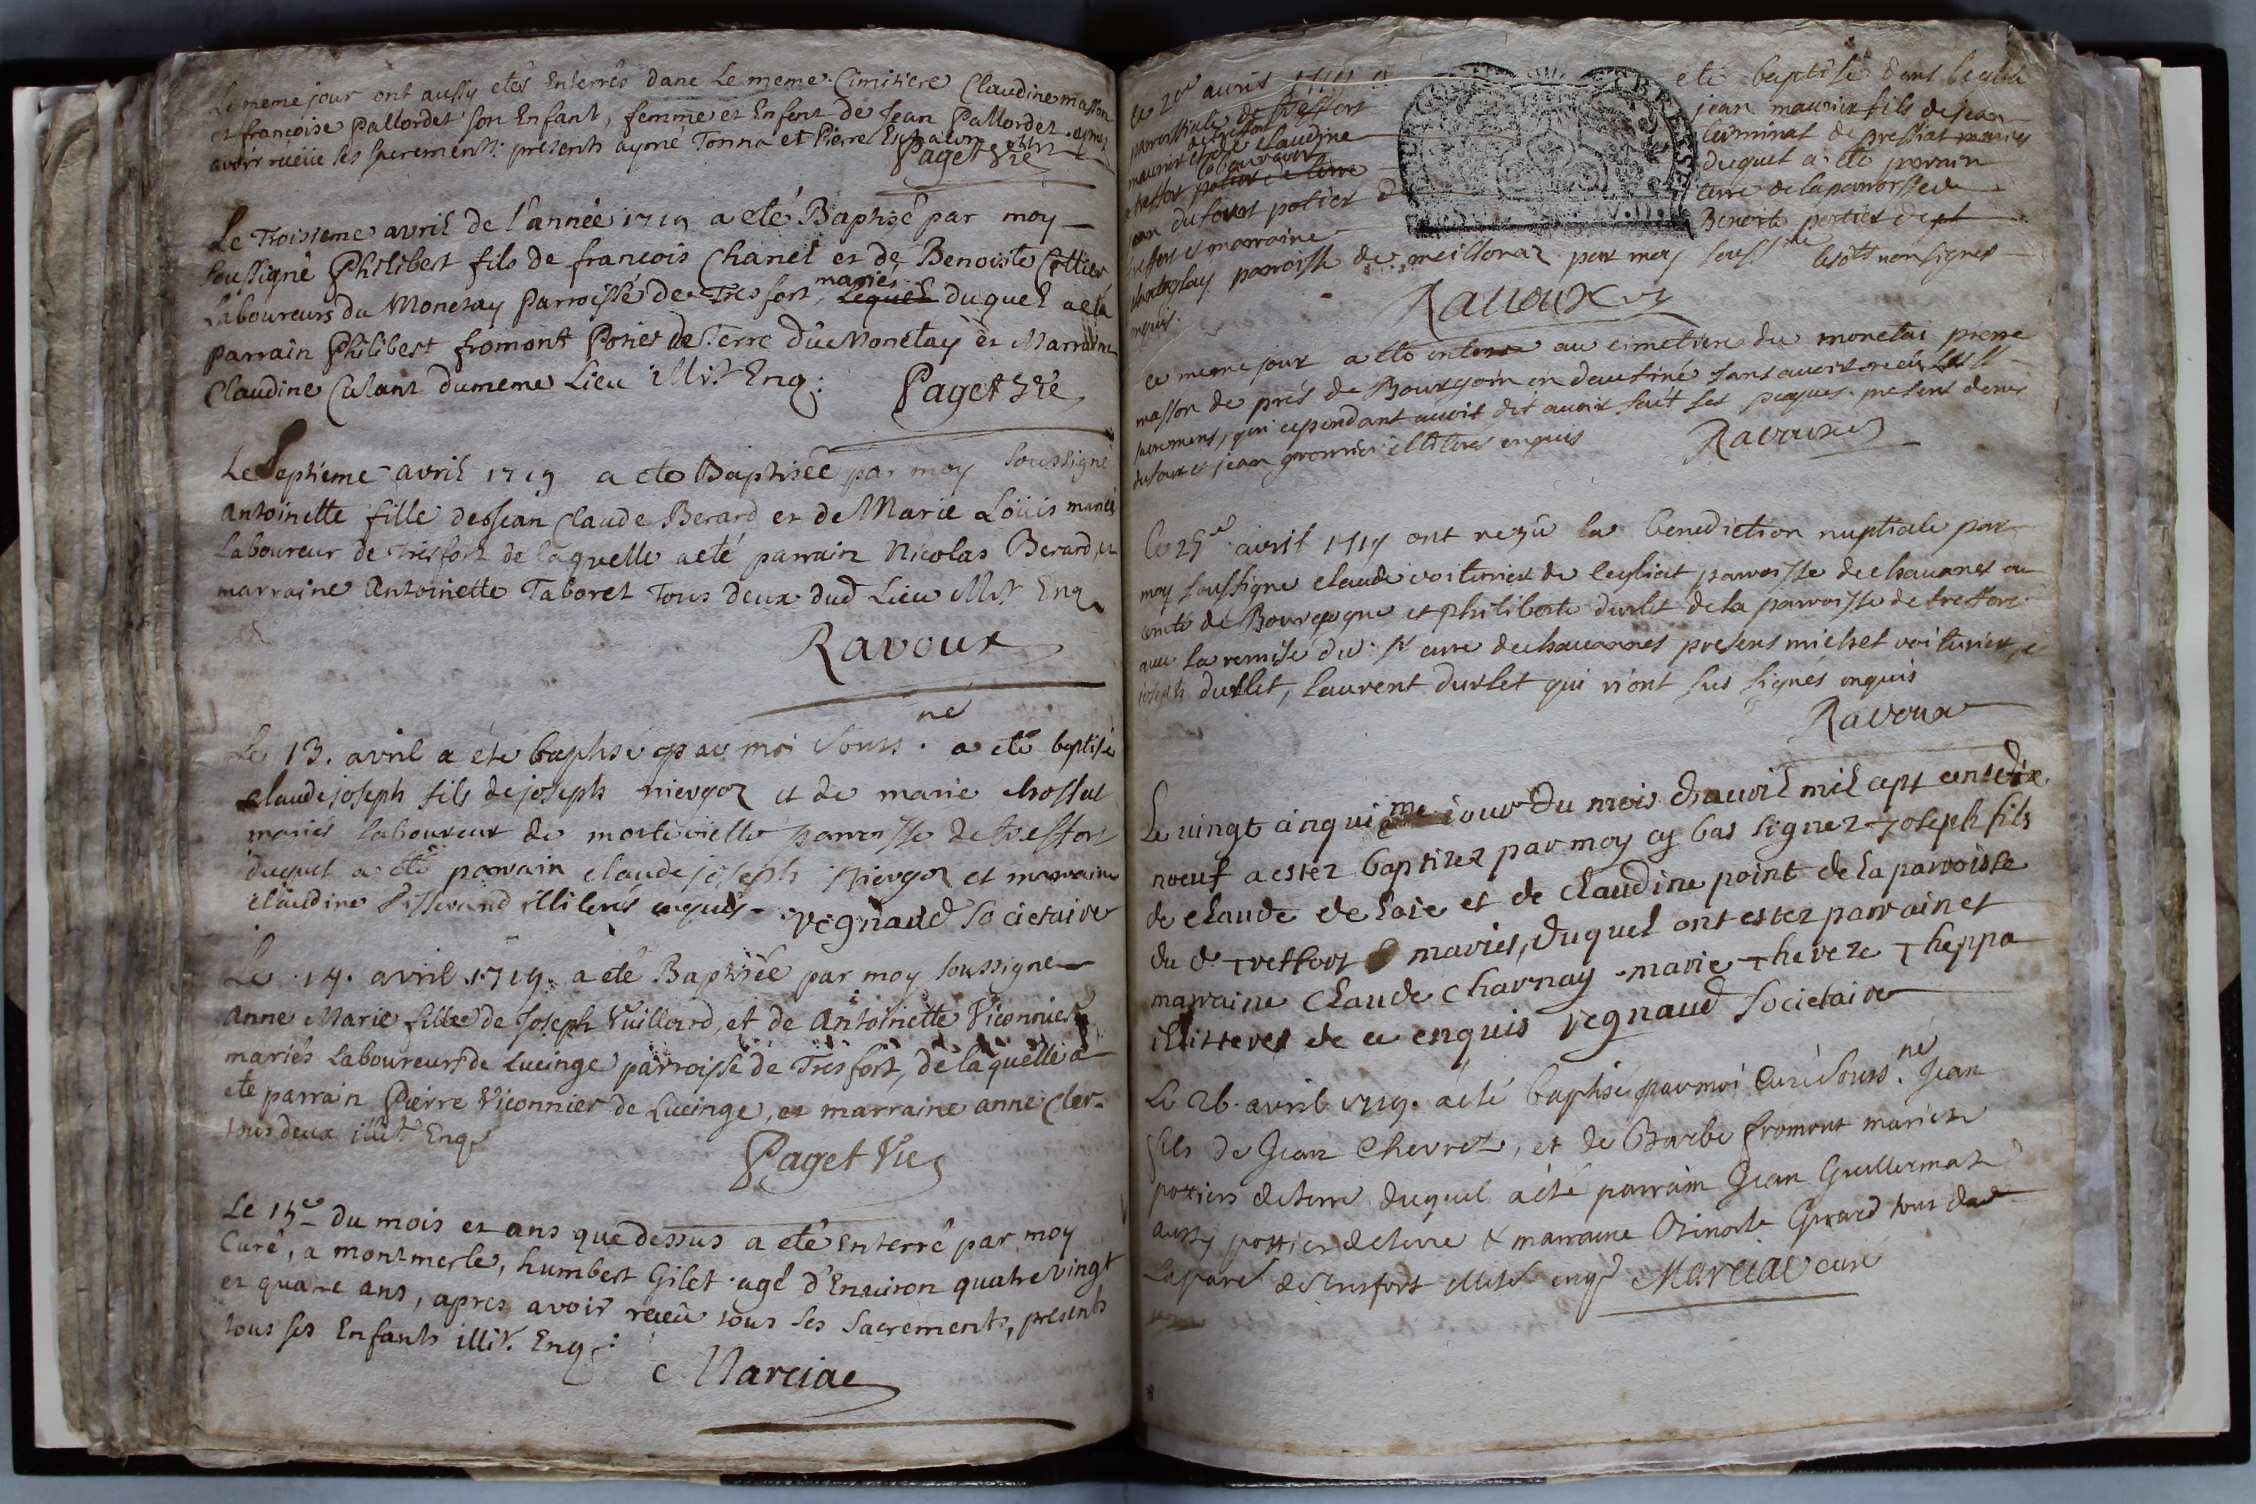 Le meme jour ont aussy etés Enterrés dane Le meme Cimitiere Claudine masson
et francoise Pallordet son Enfant, femme et Enfent de Jean Pallordet apres
avoir receüe les sacrements. presents aymé Tonna et Pierre
Paget vie
Le Troisieme avril de l'année 1719 a eté Baptisé par moy
soussigné Philibert fils de francois Chanel et de Benoiste Cottier
mariés
Laboureurs du Monetay Parroisse de Tresfort, Lequel duquel a eté
parrain Philibert fromont Potier de Terre du Monetay et Marraine
Claudine Calant dumeme Lieu illit. Enq.
Paget vie
Le Septieme avril 1719 a eté Baptiseé par moy soussigné
Antoinette fille de Jean Claude Berard et de Marie Loüis mariés
Laboureur de Tresfort de laquelle a eté parrain Nicolas Berard, et
marraine Antoinette Taboret Tous deux dud Lieu illit Enq
Ravoux
né
Le 13. avril a été baptisé par moi souss. a eté baptisé
claude joseph fils de joseph niergoz et de marie chossat
mariés laboureur de morteville parroisse de treffort
duquel a été parrain claude joseph niergoz et marraine
claudine Tisserand illiterés enquis
vegnaud societaire
Le 14. avril 1719. a eté Baptiseé par moy soussigné
Anne Marie fille de Joseph Vuillard, et de Antoinette Viconnier
mariés Laboureurs de Lucinge parroisse de Tresfort, de laquelle a
ete parrain Pierre Viconnier de Lucinge, et marraine anne Cler
tous deux illit. Enq
Paget Vie
Le 15e du mois et ans que dessus a eté Enterré par moy
Curé, a montmerle, humbert Gilet agé d'Environ quatre vingt
et quatre ans, apres avoir receü tous les sacrements, presents
tous ses Enfants illit. Enq.
Marciac
Le 20e avril 1719 eté baptisé dans l'eglise
parroissiale de treffort jean maurier fils de jean
maurier et de claudine de pressiat mariés
laboureur duquel a eté parrain
treffort potier de terre
dufour potier d
treffort et marraine Benoite potier de
parroisse de meillonaz par moy souss né lesdts non signés
enquis.
Ravoux
Le meme jour a eté enterré au cimetiere du monetai pierre
masson de prés de Bourgoin en daufiné sans avoir receu les st
sacremens, qui cependant avoit dit avoir fait ses paques. present denis
dufour et jean illiteres enquis
Ravoux
Le 25e avril 1719 ont reçû la benediction nuptiale par
moy soussigné claude voiturier de parroisse de chavanes au
comté de Bourgogne et philiberte durlet de la parroisse de treffort
avec la remise du sr curé de chavannes presens michel voiturier, et
joseph durlet, laurent durlet qui n'ont sus signés enquis
Ravoux
Le vingt cinquieme iour du mois d'avvil mil cept cent dix
noeuf a estez baptizez par moy cy bas signez Joseph fils
de claude de loie et de claudine point de la parroisse
du d. treffort mariés, duquel ont estez parrain et
marraine Claude Charnay marie Thereze Theppa
illitteres de ce enquis vegnaud societaire
né
Le 26. avril 1719. a eté baptisé par moi Curé souss. Jean
fils de Jean Chevret, et de Barbe fromont mariés
pottiers de terre duquel à eté parrain Jean Guillermat
aussy pottier de terre & marraine Benoite Girard tous de
la paroe de Tresfort illit enqs Marciac curé